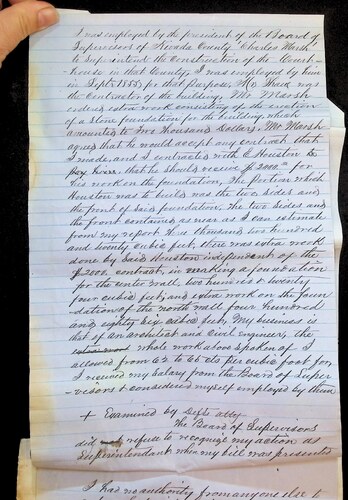 I was employed by the president of the Board of
Supervisors of Nevada County Charles Marsh
to Superintend the Construction of the Court-
house in that County, I was employed by him
in Sept. 1855 for that purpose, Mr
the Contractor of the building. Mr Marsh
ordered extra work consisting of the erection
of a stone foundation for the building, which
amounted to Two thousand Dollars. Mr Marsh
agreed that he would accept any contract that
I made, and I contracted with E Houston
that he should receive $2000.00 for
his work on the foundation, The portion which
Houston was to build was the two sides and
the front of said foundation, The two sides and
the front contained as near as I can estimate
from my report thousand two hundred
and twenty cubic feet, there was extra work
done by Said Houston independent of the
$2000. contract, in making a foundation
for the center wall, two hundred & seventy
four cubic feet, and extra work on the foun
dation of the north wall four hundred
and eighty six cubic feet My business is
that of an architect and Civil engineer, the
whole work above spoken of I
allowed from 62 to 65 cts per cubic foot for,
I received my Salary from the Board of Super
visors & considered myself employed by them
+ Examined by Defts atty
The Board of Supervisors
did refuse to recognize my action as
Superintendant when my bill was presented
I had no authority from anyone else to